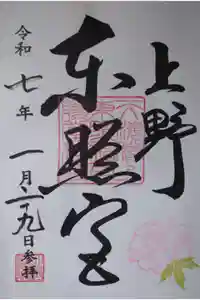 上野
東照宮
令和七年
一月二十九日
参拝